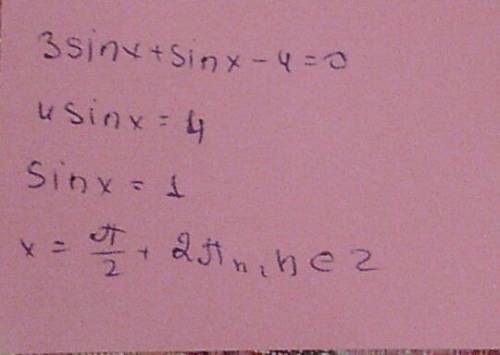 3sinx+sinx-4=0
4sinx=4
sinx=1
x = π/2 + 2πn, n∈Z